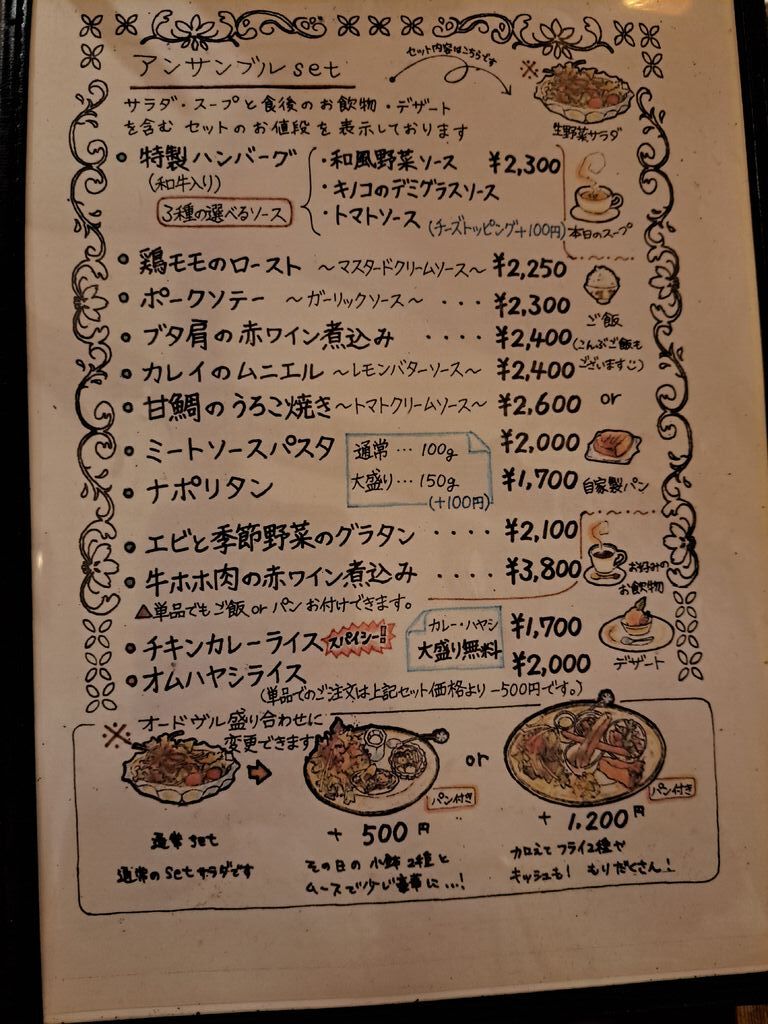 アンサンブルset
セット内容はこちらです
※
生野菜サラダ
サラダ・スープと食後のお飲物・デザート
を含む セットのお値段を表示しております
• 特製ハンバーグ ・和風野菜ソース ¥2,300
(和牛入り) ・キノコのデミグラスソース
3種の選べるソース ・トマトソース (チーズトッピング+100円)
本日のスープ
• 鶏モモのロースト 〜マスタードクリームソース〜 ¥2,250
• ポークソテー 〜ガーリックソース〜 ・・・・ ¥2,300
ご飯
• ブタ肩の赤ワイン煮込み ・・・・ ¥2,400
(こんぶご飯も
ございます☺)
• カレイのムニエル 〜レモンバターソース〜 ¥2,400
• 甘鯛のうろこ焼き〜トマトクリームソース〜 ¥2,600
or
• ミートソースパスタ ¥2,000
通常…100g
大盛り…150g
(+100円)
• ナポリタン ¥1,700
自家製パン
• エビと季節野菜のグラタン ・・・・ ¥2,100
• 牛ホホ肉の赤ワイン煮込み ・・・・ ¥3,800
お好みの
お飲物
▲単品でもご飯 or パン お付けできます。
• チキンカレーライス スパイシー!! ¥1,700
カレー・ハヤシ
大盛り無料
• オムハヤシライス ¥2,000
デザート
(単品でのご注文は上記セット価格より−500円です。)
※ オードヴル盛り合わせに
変更できます
通常set
通常のsetサラダです
パン付き
+ 500円
その日の小鉢2種と
ムースで少し豪華に…!
or
パン付き
+ 1,200円
加えて フライ2種や
キッシュも! もりだくさん!